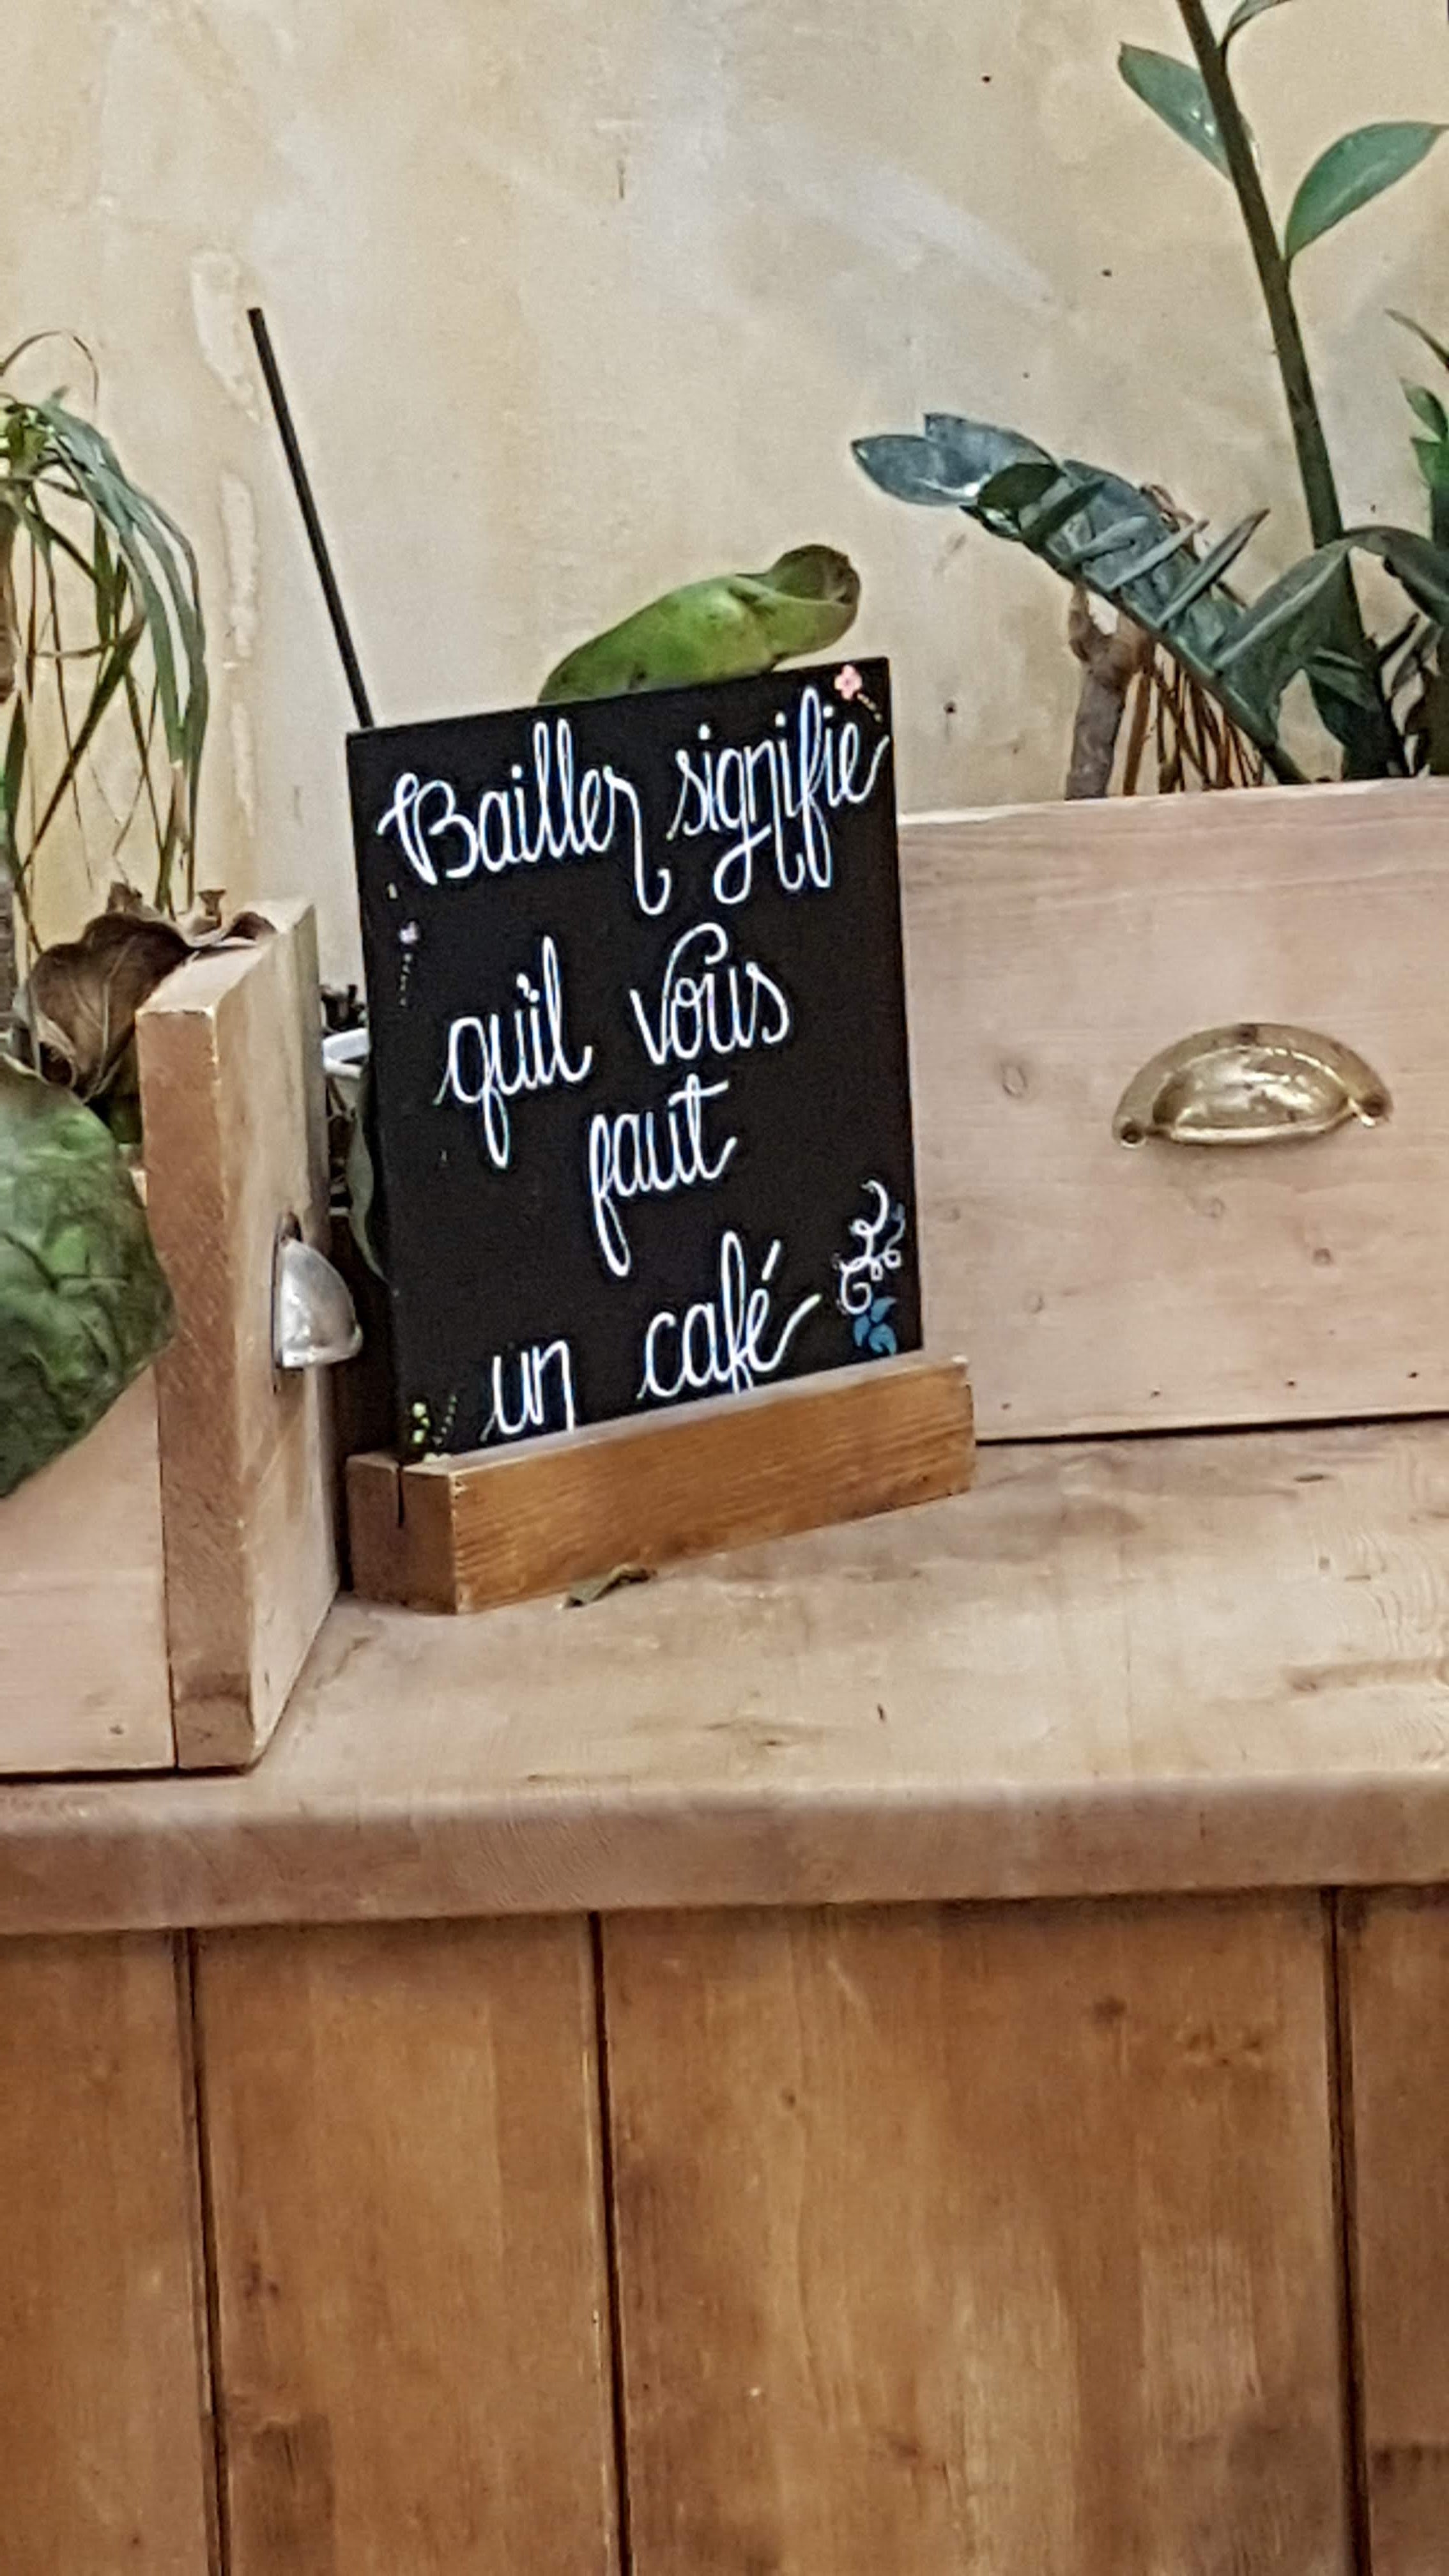 Bailler signifie
qu'il vous
faut
un café